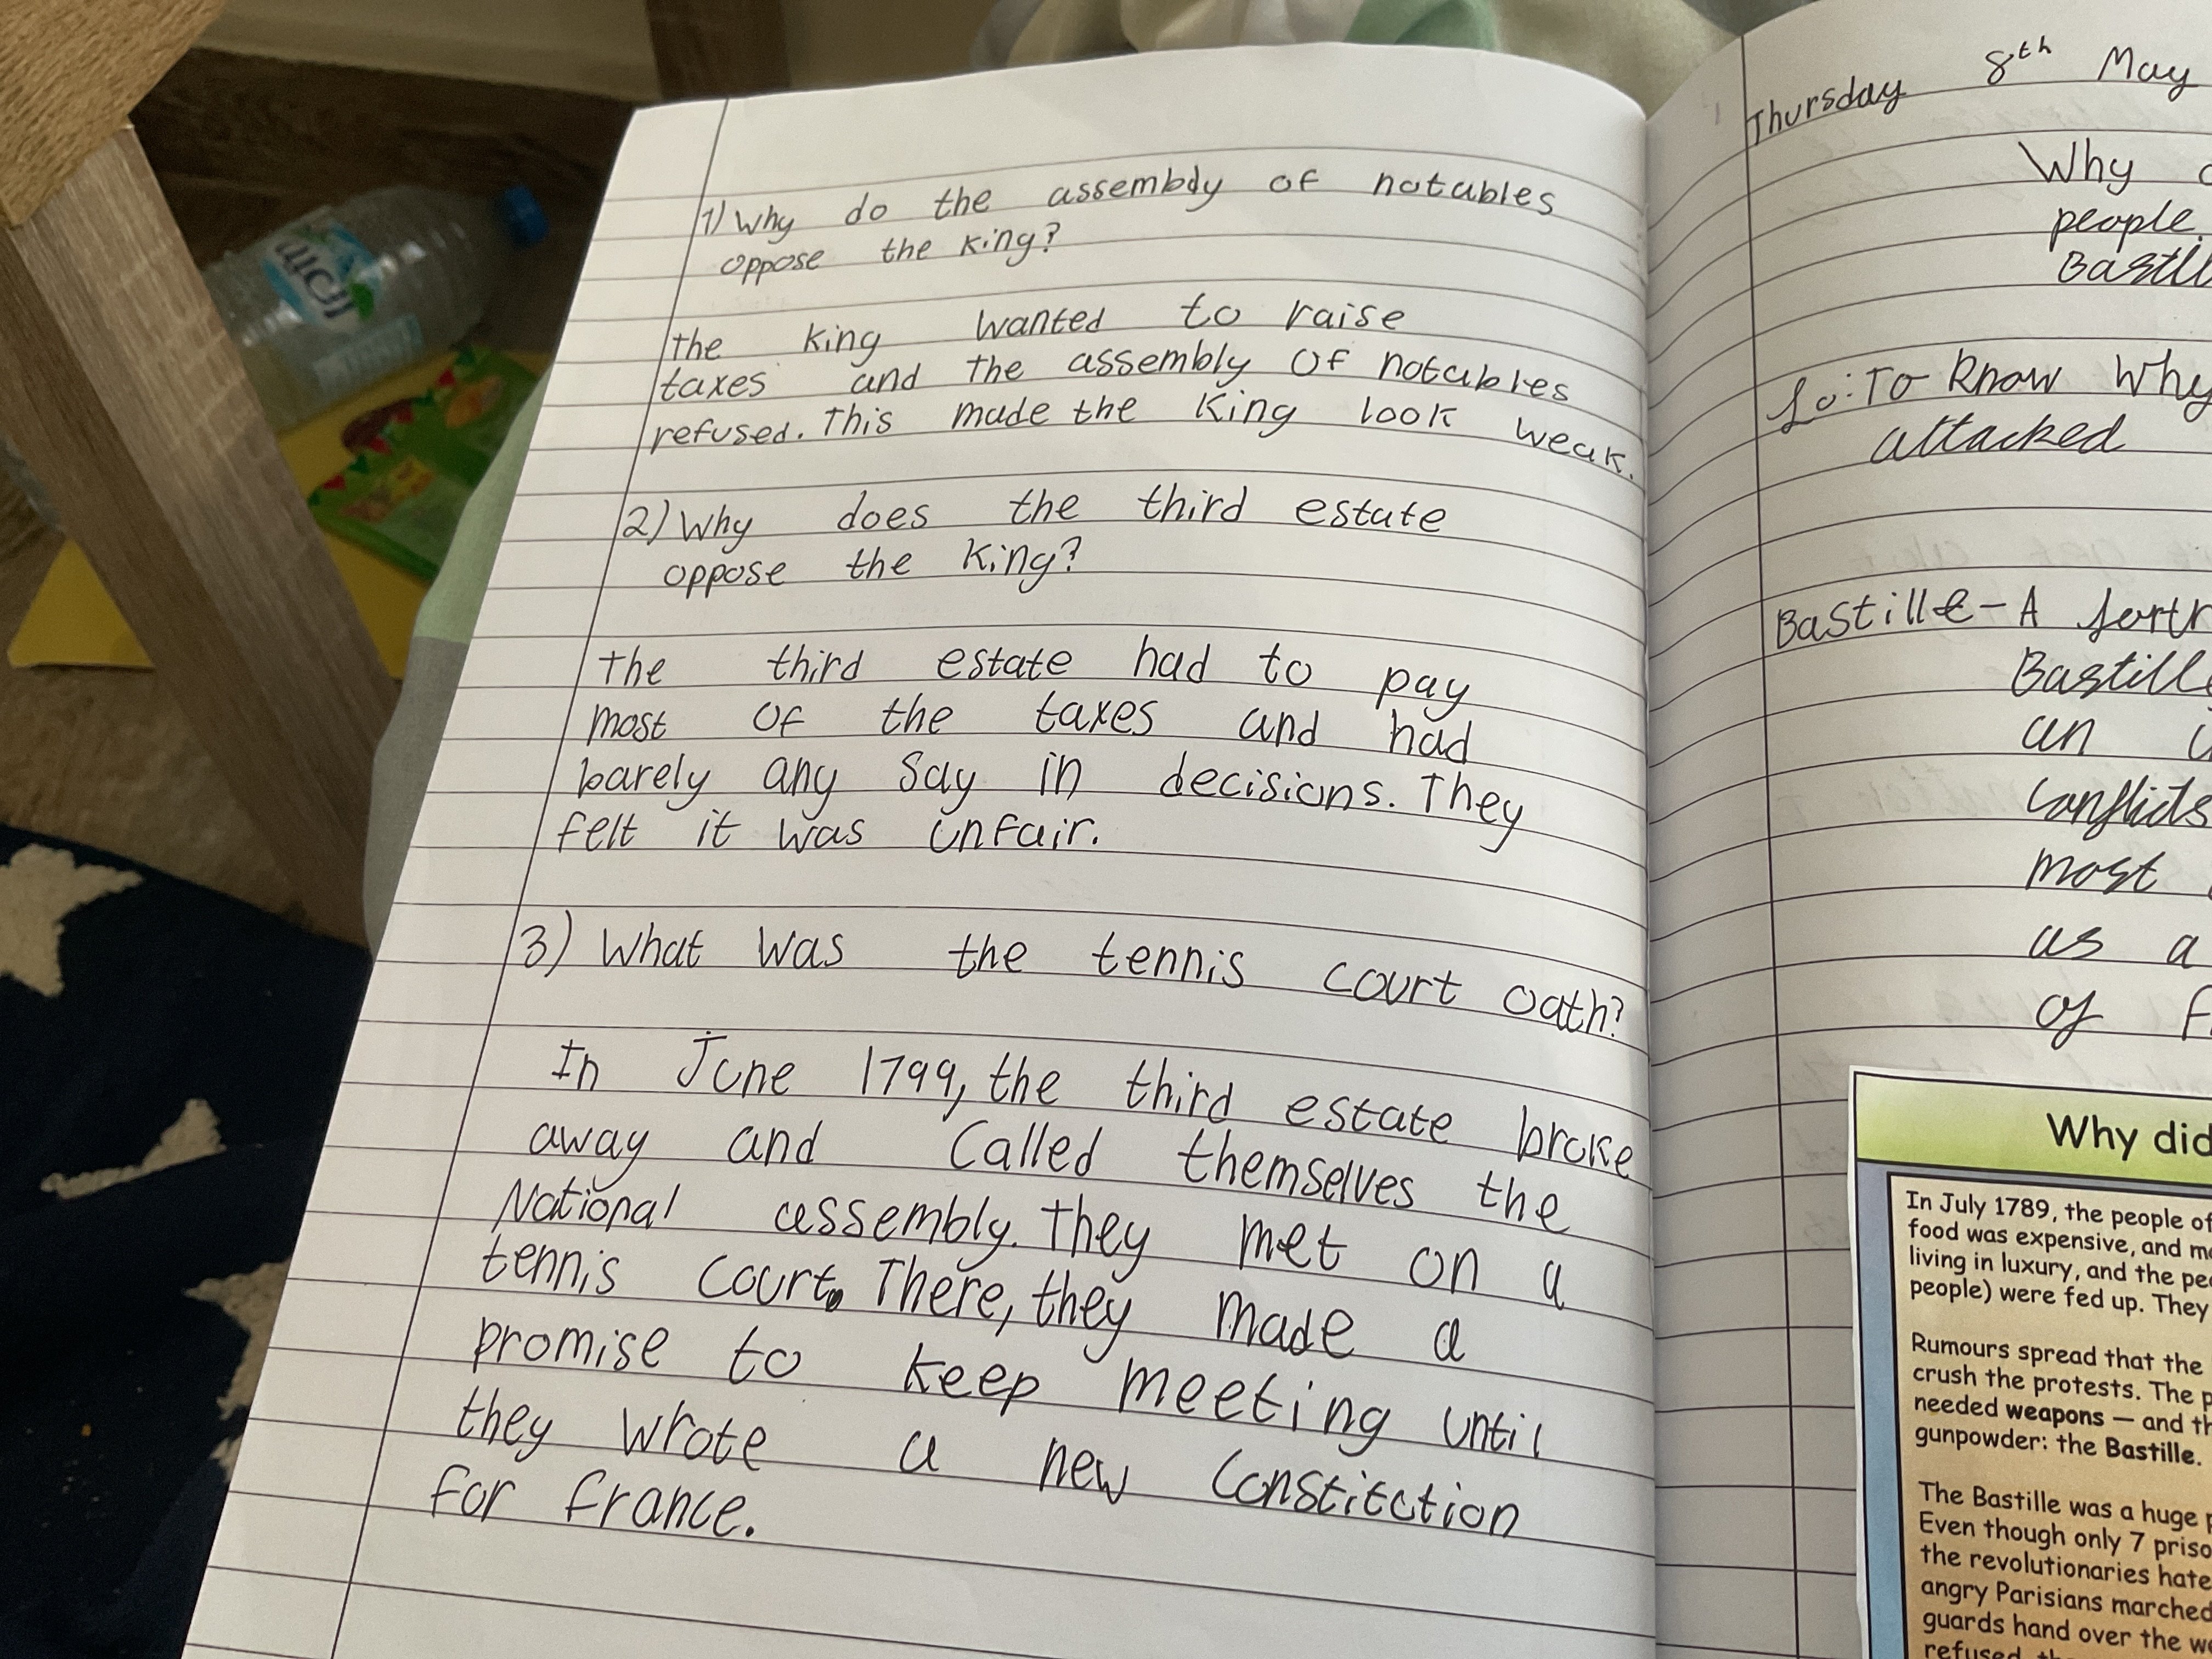 1) Why do the assembdy of notables
oppose the King?
the king wanted to raise
taxes and the assembly of notables
refused. This made the King look weak.
2) Why does the third estate
oppose the King?
The third estate had to pay
most of the taxes and had
barely any say in decisions. They
felt it was unfair.
3) What was the tennis court oath?
In June 1799, the third estate broke
away and called themselves the
National assembly. They met on a
tennis court. There, they made a
promise to keep meeting until
they wrote a new Constitution
for france.
Thursday 8th May
Why
people
Lo: To know why
attacked
Bastille - A
Bastille
an
conflicts
most
as a
of
Why did
In July 1789, the people of
food was expensive, and
living in luxury, and the
people) were fed up. They
Rumours spread that the
crush the protests. The
needed weapons — and
gunpowder: the Bastille.
The Bastille was a huge
Even though only 7
the revolutionaries
angry Parisians marched
guards hand over the
refused,
volvic